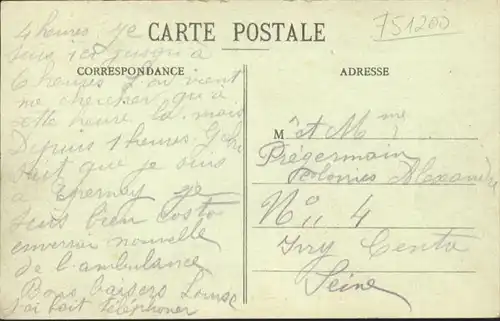 CARTE POSTALE
751200
CORRESPONDANCE
ADRESSE
4 heures, je
suis ici jusqu'à
6 heures. on vient
me chercher qu'à
cette heure là mais
Depuis 1 heures
fait que je suis
à Epernay je
suis bien
nouvelle
de l'ambulance
Bons baisers Louise
J'ai fait téléphoner
M et Mme
Prégermain
Colonies Alexandre
No 4
Ivry Centre
Seine